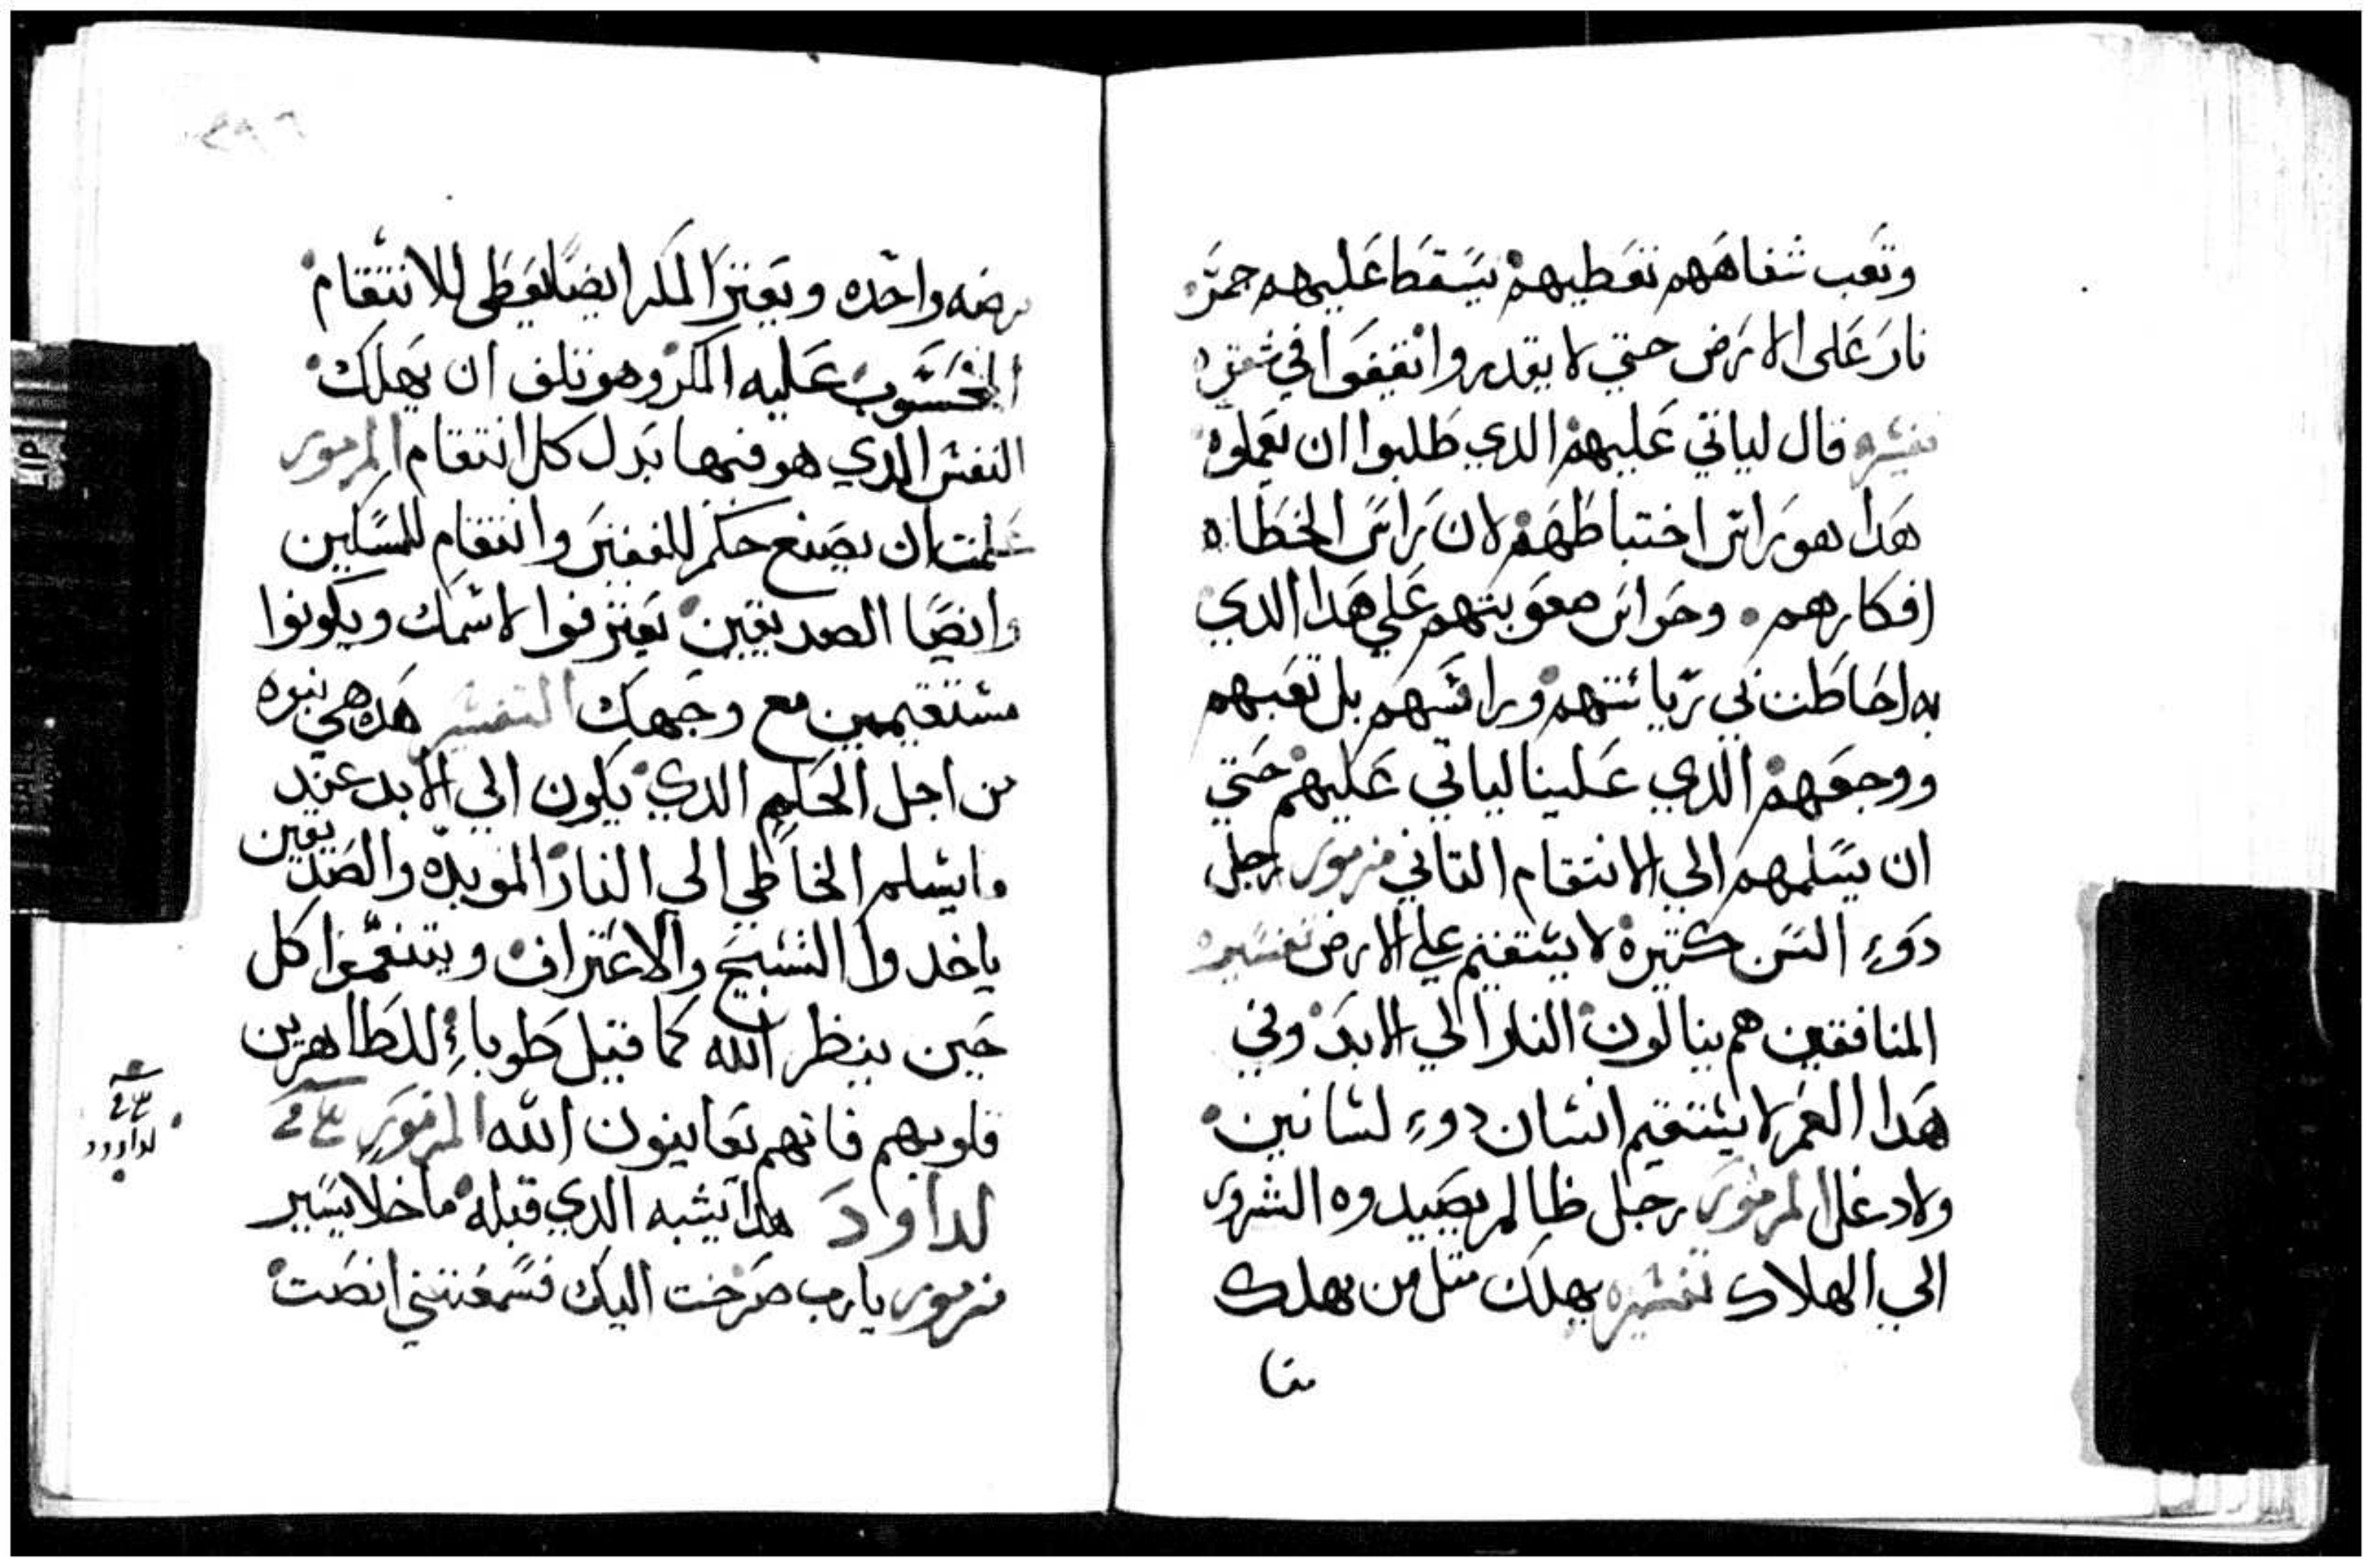 وتعب شفاههم تغطيهم يسقط عليهم جمر
نار على الارض حتي لا يقدروا انقيفوا في شقوه
تفسيره قال لياتي عليهم الدي طلبوا ان يعملوه
هدا هو راس اختباطهم لان راس الخطاه
افكارهم وحراس صعوبتهم علي هدا الدي
به احاطت بي ريائستهم وراسهم بل تعبهم
ووجعهم الدي علينا لياتي عليهم حتي
ان يسلمهم الي الانتقام التاني مزمور رجل
دوء السن كتيره لا يستقيم علي الارض تفسيره
المنافقين هم ينالون النار الي الابد وفي
هدا العمر لا يستقيم انسان دوء لسانين
ولا دغل المزمور رجل ظالم يصيدوه الشرور
الي الهلاك تفسيره يهلك متل من يهلك
واحده ويعتز المكر ايضا يعطي للانتقام
المحسوب عليه المكر وهو تلف ان يهلك
النفس الدي هو فيها بدل كل انتقام المزمور
علمت ان يصنع حكم للفقير وانتقام للمساكين
وايضا الصديقين يعترفوا لاسمك ويكونوا
مستقيمين مع وجهك التفسير هده هي نبوه
من اجل الحكم الدي يكون الي الابد عنيد
وايسلم الخاطي الي النار الموبده والصديقين
ياخدوا التسبيح والاعتراف ويتنعموا كل
حين بنظر الله كما قيل طوباء للطاهرين
قلوبهم فانهم يعاينون الله المزمور
لداود هدا يشبه الدي قبله ما خلا يسير
مزمور يارب صرخت اليك فسمعتني انصت
لداوود